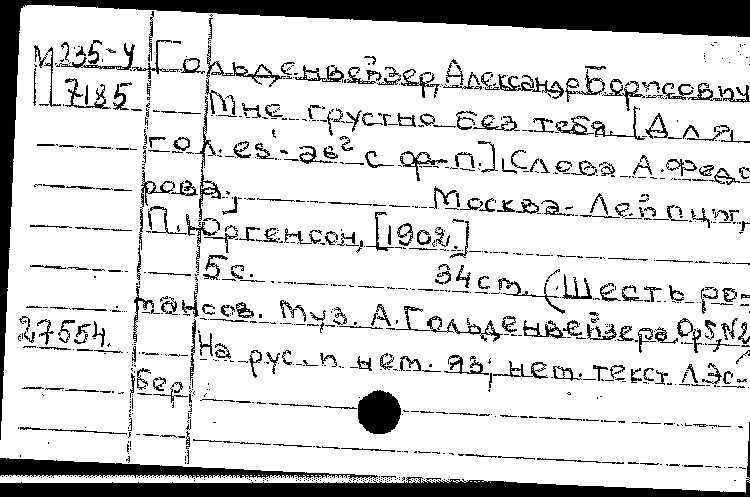 М 235-У [Гольденвейзер, Александр Борисович
7185 Мне грустно без тебя. [Для
гол. es¹-as² с ф-п.] [Слова А. Федо
рова.] Москва-Лейпциг,
П. Юргенсон, [1902.]
5 с. 34 см. (Шесть ро=
мансов. Муз. А. Гольденвейзера. Op5, N2
27554. На рус. и нем. яз; нем. текст Л. Эс-
бер